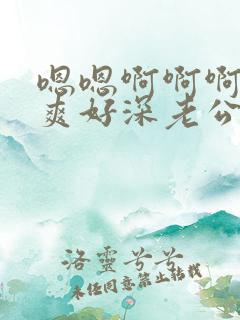 嗯嗯啊啊啊
爽好深老公
洛灵兮兮
未经同意禁止转载